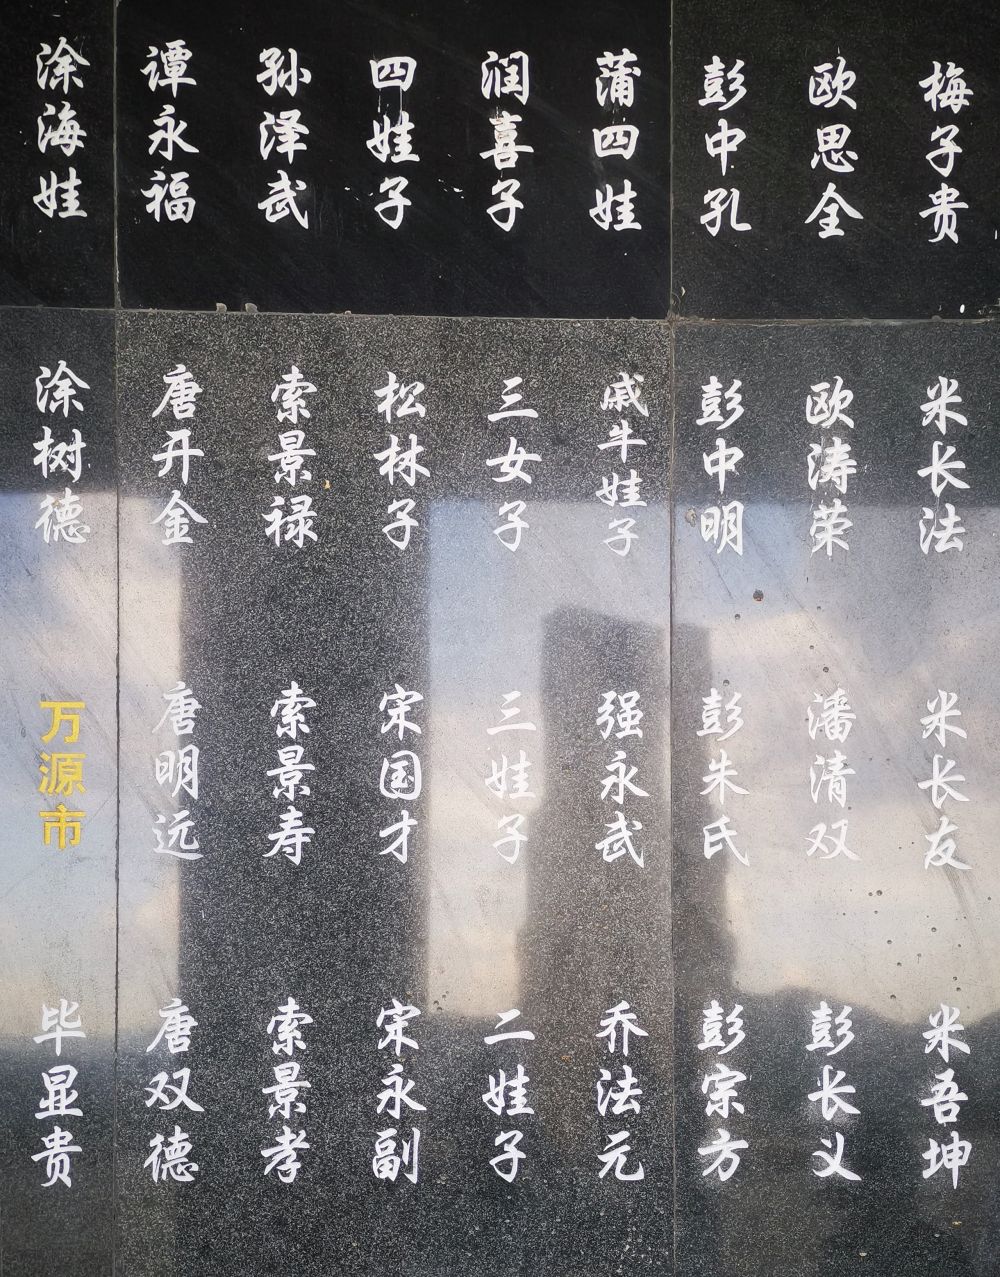 梅子贵
米长法
米长友
米吾坤
欧思全
欧涛荣
潘清双
彭长义
彭中孔
彭中明
彭朱氏
彭宗方
蒲四娃
戚牛娃子
强永武
乔法元
润喜子
三女子
三娃子
二娃子
四娃子
松林子
宋国才
宋永副
孙泽武
索景禄
索景寿
索景孝
谭永福
唐开金
唐明远
唐双德
涂海娃
涂树德
万源市
毕显贵